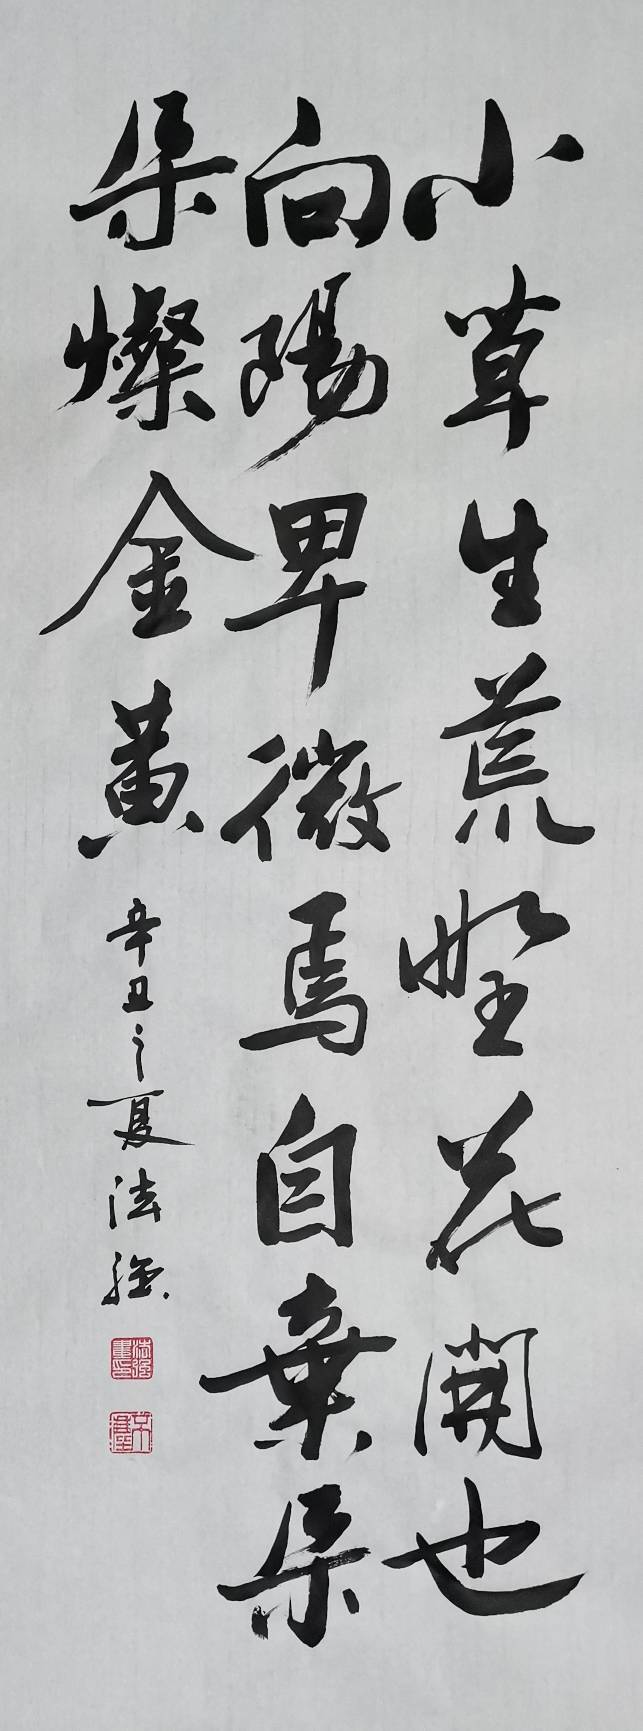 小草生荒埜花開也
向陽卑微焉自棄朵
朵燦金黃
辛丑之夏法強